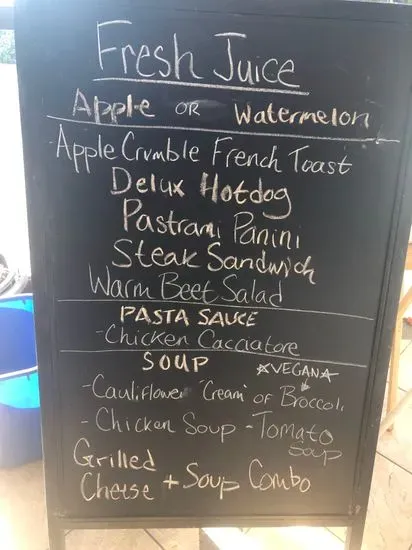 Fresh Juice
Apple OR Watermelon
-Apple Crumble French Toast
Delux Hotdog
Pastrami Panini
Steak Sandwich
Warm Beet Salad
PASTA SAUCE
-Chicken Cacciatore
SOUP *VEGAN*
-Cauliflower "Cream" of Broccoli
-Chicken Soup -Tomato Soup
Grilled Cheese + Soup Combo